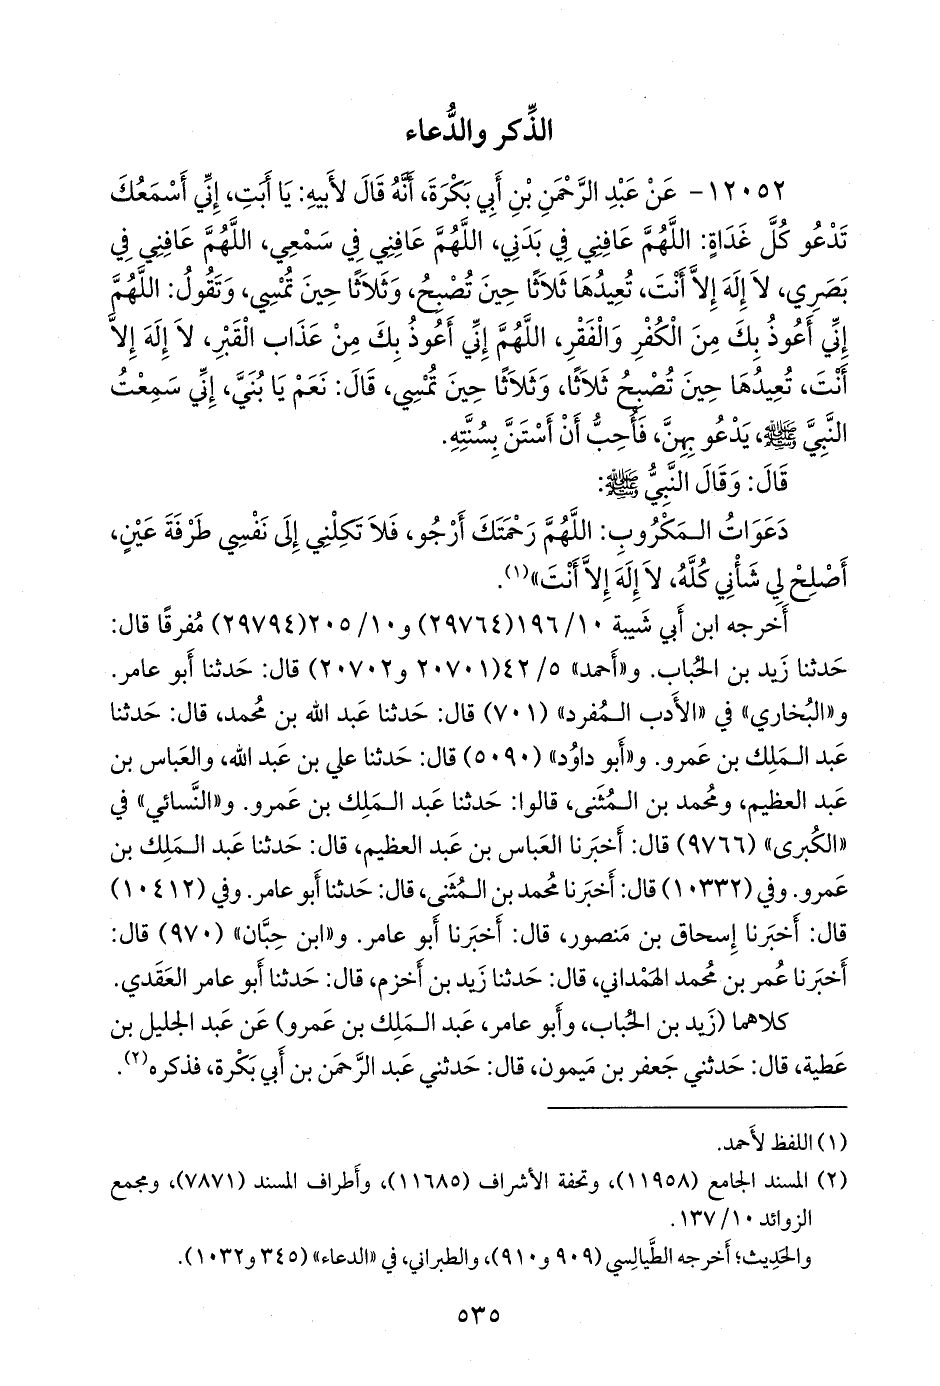 الذِّكر والدُّعاء
١٢٠٥٢- عَنْ عَبْدِ الرَّحْمَنِ بْنِ أَبِي بَكْرَةَ، أَنَّهُ قَالَ لأَبِيهِ: يَا أَبَتِ، إِنِّي أَسْمَعُكَ
تَدْعُو كُلَّ غَدَاةٍ: اللَّهُمَّ عَافِنِي فِي بَدَنِي، اللَّهُمَّ عَافِنِي فِي سَمْعِي، اللَّهُمَّ عَافِنِي فِي
بَصَرِي، لاَ إِلَهَ إِلاَّ أَنْتَ، تُعِيدُهَا ثَلاَثًا حِينَ تُصْبِحُ، وَثَلاَثًا حِينَ تُمْسِي، وَتَقُولُ: اللَّهُمَّ
إِنِّي أَعُوذُ بِكَ مِنَ الْكُفْرِ وَالْفَقْرِ، اللَّهُمَّ إِنِّي أَعُوذُ بِكَ مِنْ عَذَابِ الْقَبْرِ، لاَ إِلَهَ إِلاَّ
أَنْتَ، تُعِيدُهَا حِينَ تُصْبِحُ ثَلاَثًا، وَثَلاَثًا حِينَ تُمْسِي، قَالَ: نَعَمْ يَا بُنَيَّ، إِنِّي سَمِعْتُ
النَّبِيَّ ﷺ، يَدْعُو بِهِنَّ، فَأُحِبُّ أَنْ أَسْتَنَّ بِسُنَّتِهِ.
قَالَ: وَقَالَ النَّبِيُّ ﷺ:
دَعَوَاتُ الـمَكْرُوبِ: اللَّهُمَّ رَحْمَتَكَ أَرْجُو، فَلاَ تَكِلْنِي إِلَى نَفْسِي طَرْفَةَ عَيْنٍ،
أَصْلِحْ لِي شَأْنِي كُلَّهُ، لاَ إِلَهَ إِلاَّ أَنْتَ»(١).
أَخرجه ابن أَبي شَيبة ١٠/ ١٩٦(٢٩٧٦٤) و١٠/ ٢٠٥(٢٩٧٩٤) مُفرقًا قال:
حَدثنا زَيد بن الحُباب. و«أَحمد» ٥/ ٤٢(٢٠٧٠١ و٢٠٧٠٢) قال: حَدثنا أَبو عامر.
و«البُخاري» في «الأَدب الـمُفرد» (٧٠١) قال: حَدثنا عَبد الله بن مُحمد، قال: حَدثنا
عَبد الـمَلِك بن عَمرو. و«أَبو داوُد» (٥٠٩٠) قال: حَدثنا علي بن عَبد الله، والعَباس بن
عَبد العظيم، ومُحمد بن الـمُثنى، قالوا: حَدثنا عَبد الـمَلِك بن عَمرو. و«النَّسائي» في
«الكُبرى» (٩٧٦٦) قال: أَخبَرنا العَباس بن عَبد العظيم، قال: حَدثنا عَبد الـمَلِك بن
عَمرو. وفي (١٠٣٣٢) قال: أَخبَرنا مُحمد بن الـمُثنى، قال: حَدثنا أَبو عامر. وفي (١٠٤١٢)
قال: أَخبَرنا إِسحاق بن مَنصور، قال: أَخبَرنا أَبو عامر. و«ابن حِبَّان» (٩٧٠) قال:
أَخبَرنا عُمر بن مُحمد الهَمْداني، قال: حَدثنا زَيد بن أَخزم، قال: حَدثنا أَبو عامر العَقَدي.
كلاهما (زَيد بن الحُباب، وأَبو عامر، عَبد الـمَلِك بن عَمرو) عَن عَبد الجليل بن
عَطية، قال: حَدثني جَعفر بن مَيمون، قال: حَدثني عَبد الرَّحمَن بن أَبي بَكْرة، فذكره(٢).
(١) اللفظ لأَحمد.
(٢) المسند الجامع (١١٩٥٨)، وتحفة الأشراف (١١٦٨٥)، وأَطراف المسند (٧٨٧١)، ومجمع
الزوائد ١٠/ ١٣٧.
والحَدِيث؛ أَخرجه الطَّيالِسي (٩٠٩ و٩١٠)، والطبراني، في «الدعاء» (٣٤٥ و١٠٣٢).
٥٣٥